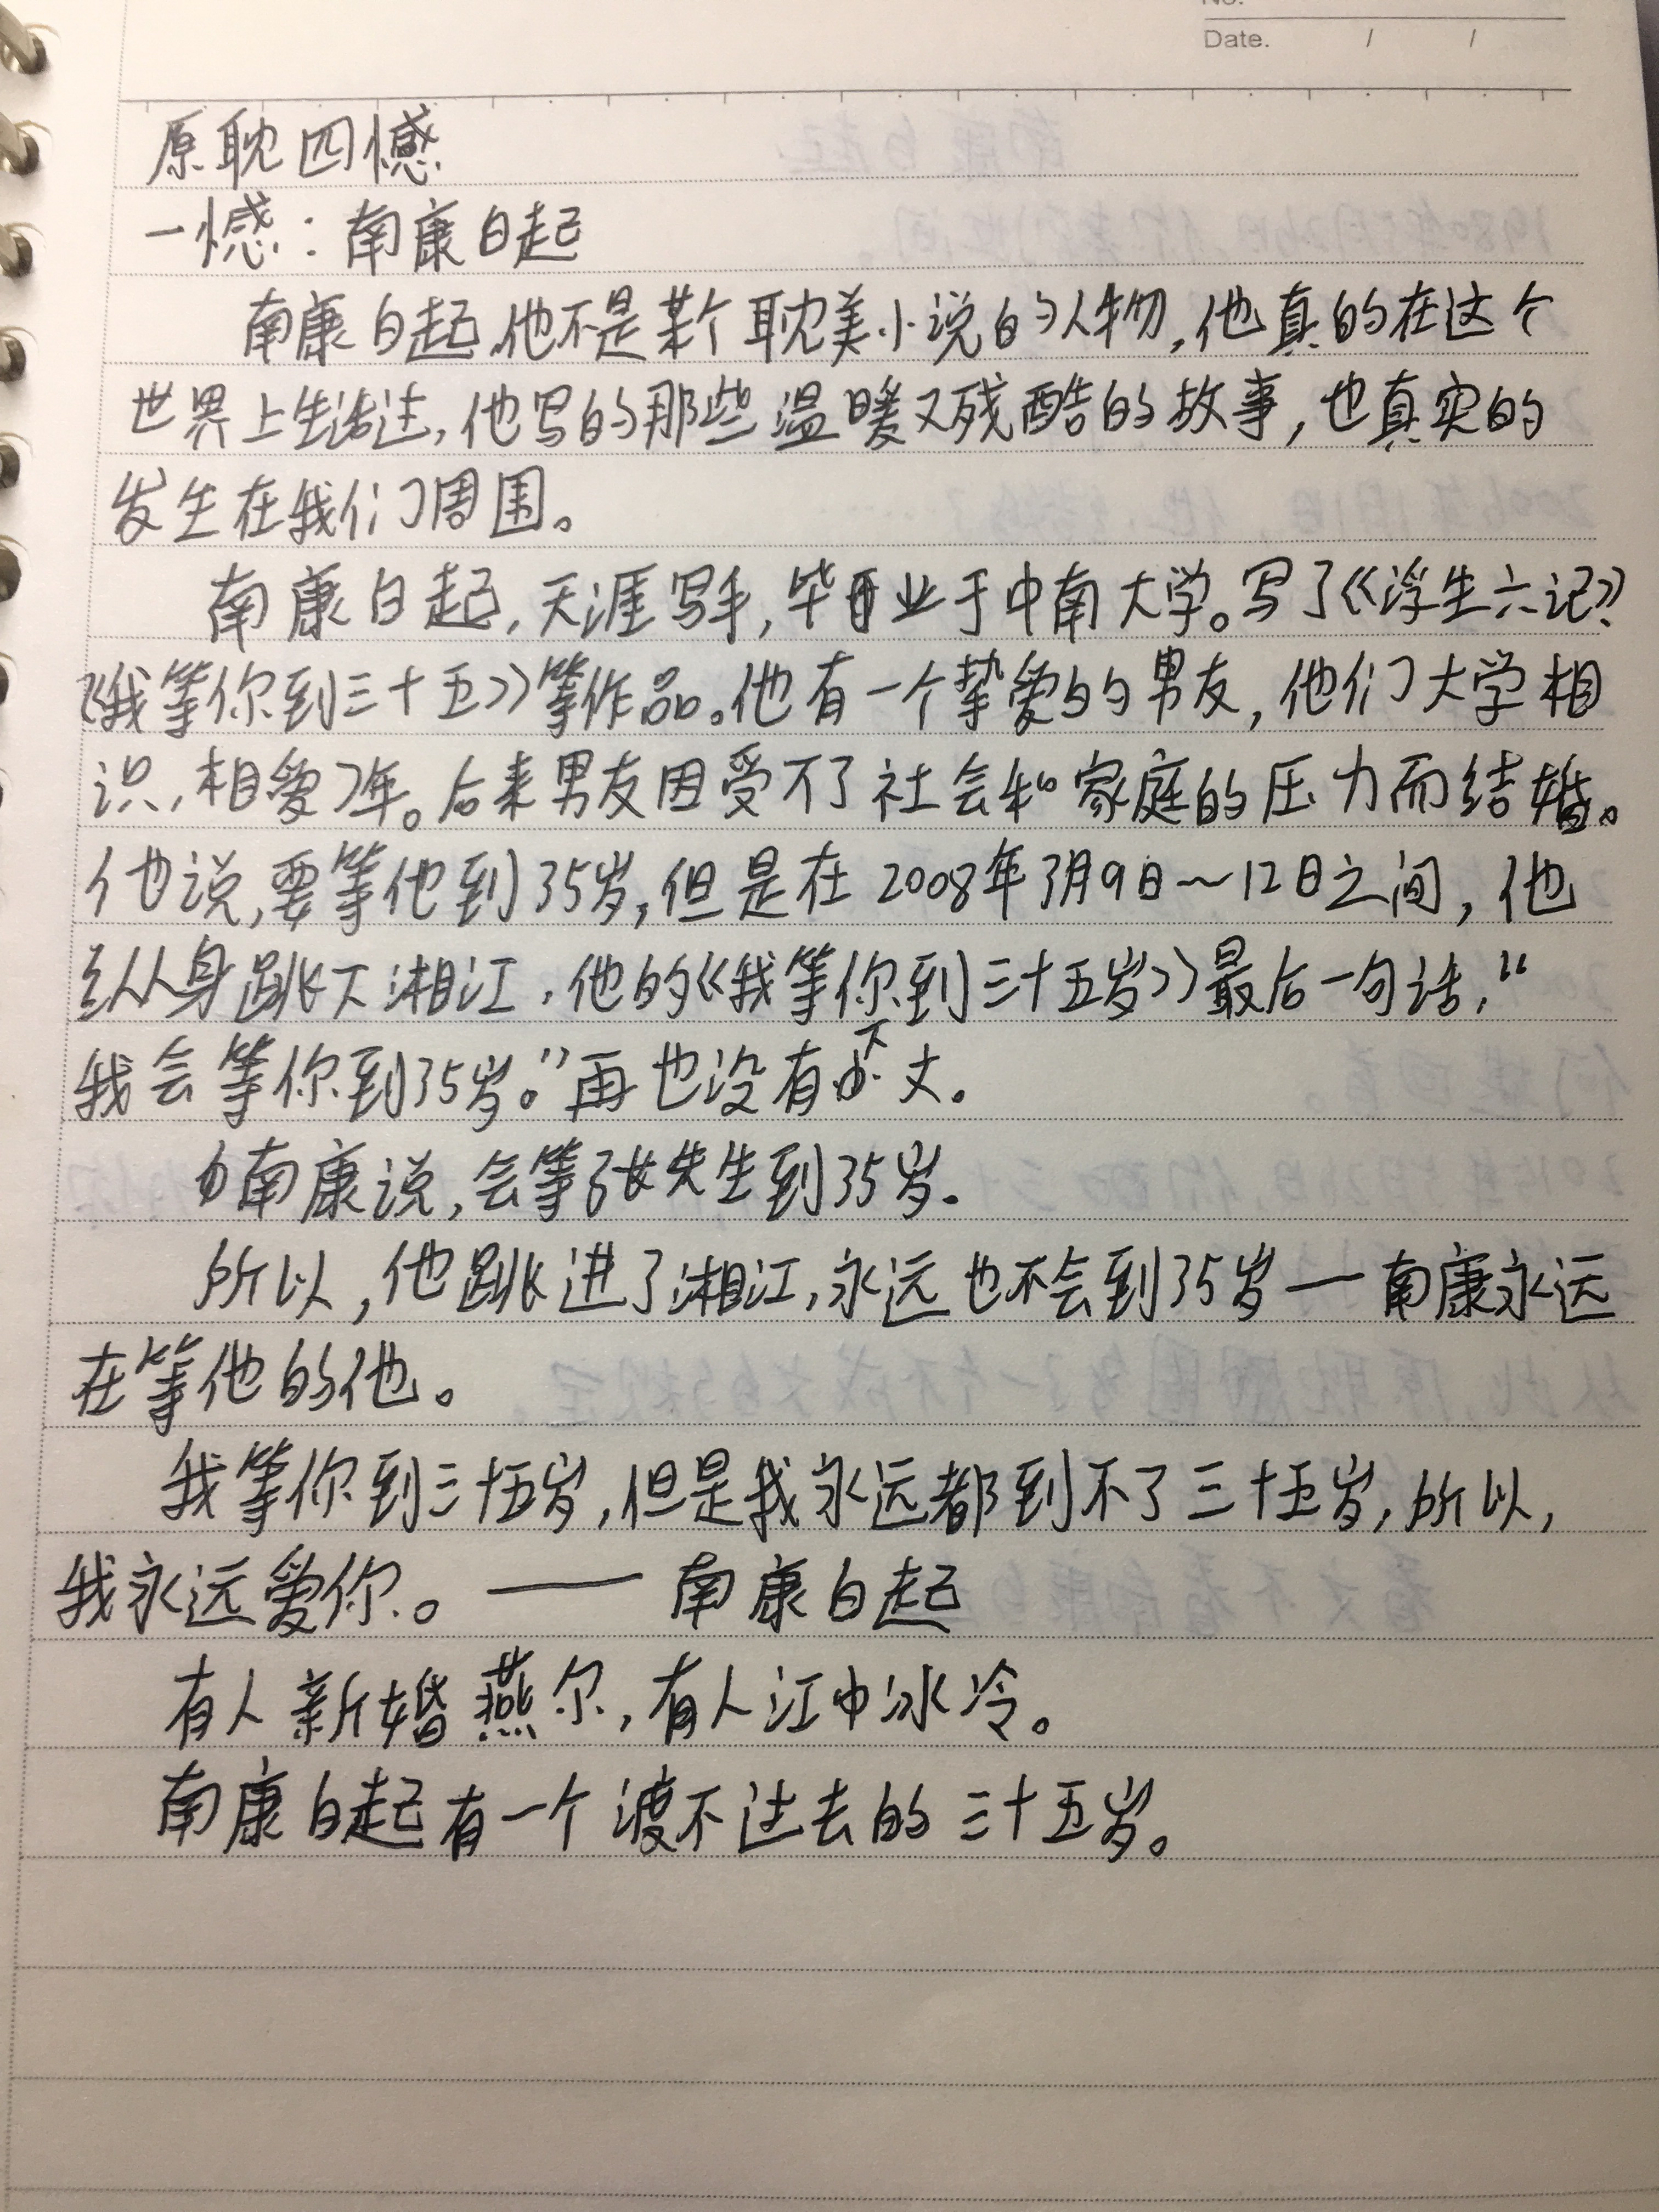 No.
Date. / /
原耽四憾
一憾：南康白起
南康白起,他不是某个耽美小说的人物,他真的在这个
世界上生活过,他写的那些温暖又残酷的故事,也真实的
发生在我们周围。
南康白起,天涯写手,毕业于中南大学。写了《浮生六记》
《我等你到三十五》等作品。他有一个挚爱的男友,他们大学相
识,相爱7年。后来男友因受不了社会和家庭的压力而结婚。
他说,要等他到35岁,但是在2008年3月9日～12日之间,他
纵身跳下湘江,他的《我等你到三十五岁》最后一句话,“
我会等你到35岁。”再也没有下文。
南康说,会等张先生到35岁.
所以,他跳进了湘江,永远也不会到35岁—南康永远
在等他的他。
我等你到三十五岁,但是我永远都到不了三十五岁,所以,
我永远爱你。——南康白起
有人新婚燕尔,有人江中冰冷。
南康白起有一个渡不过去的三十五岁。